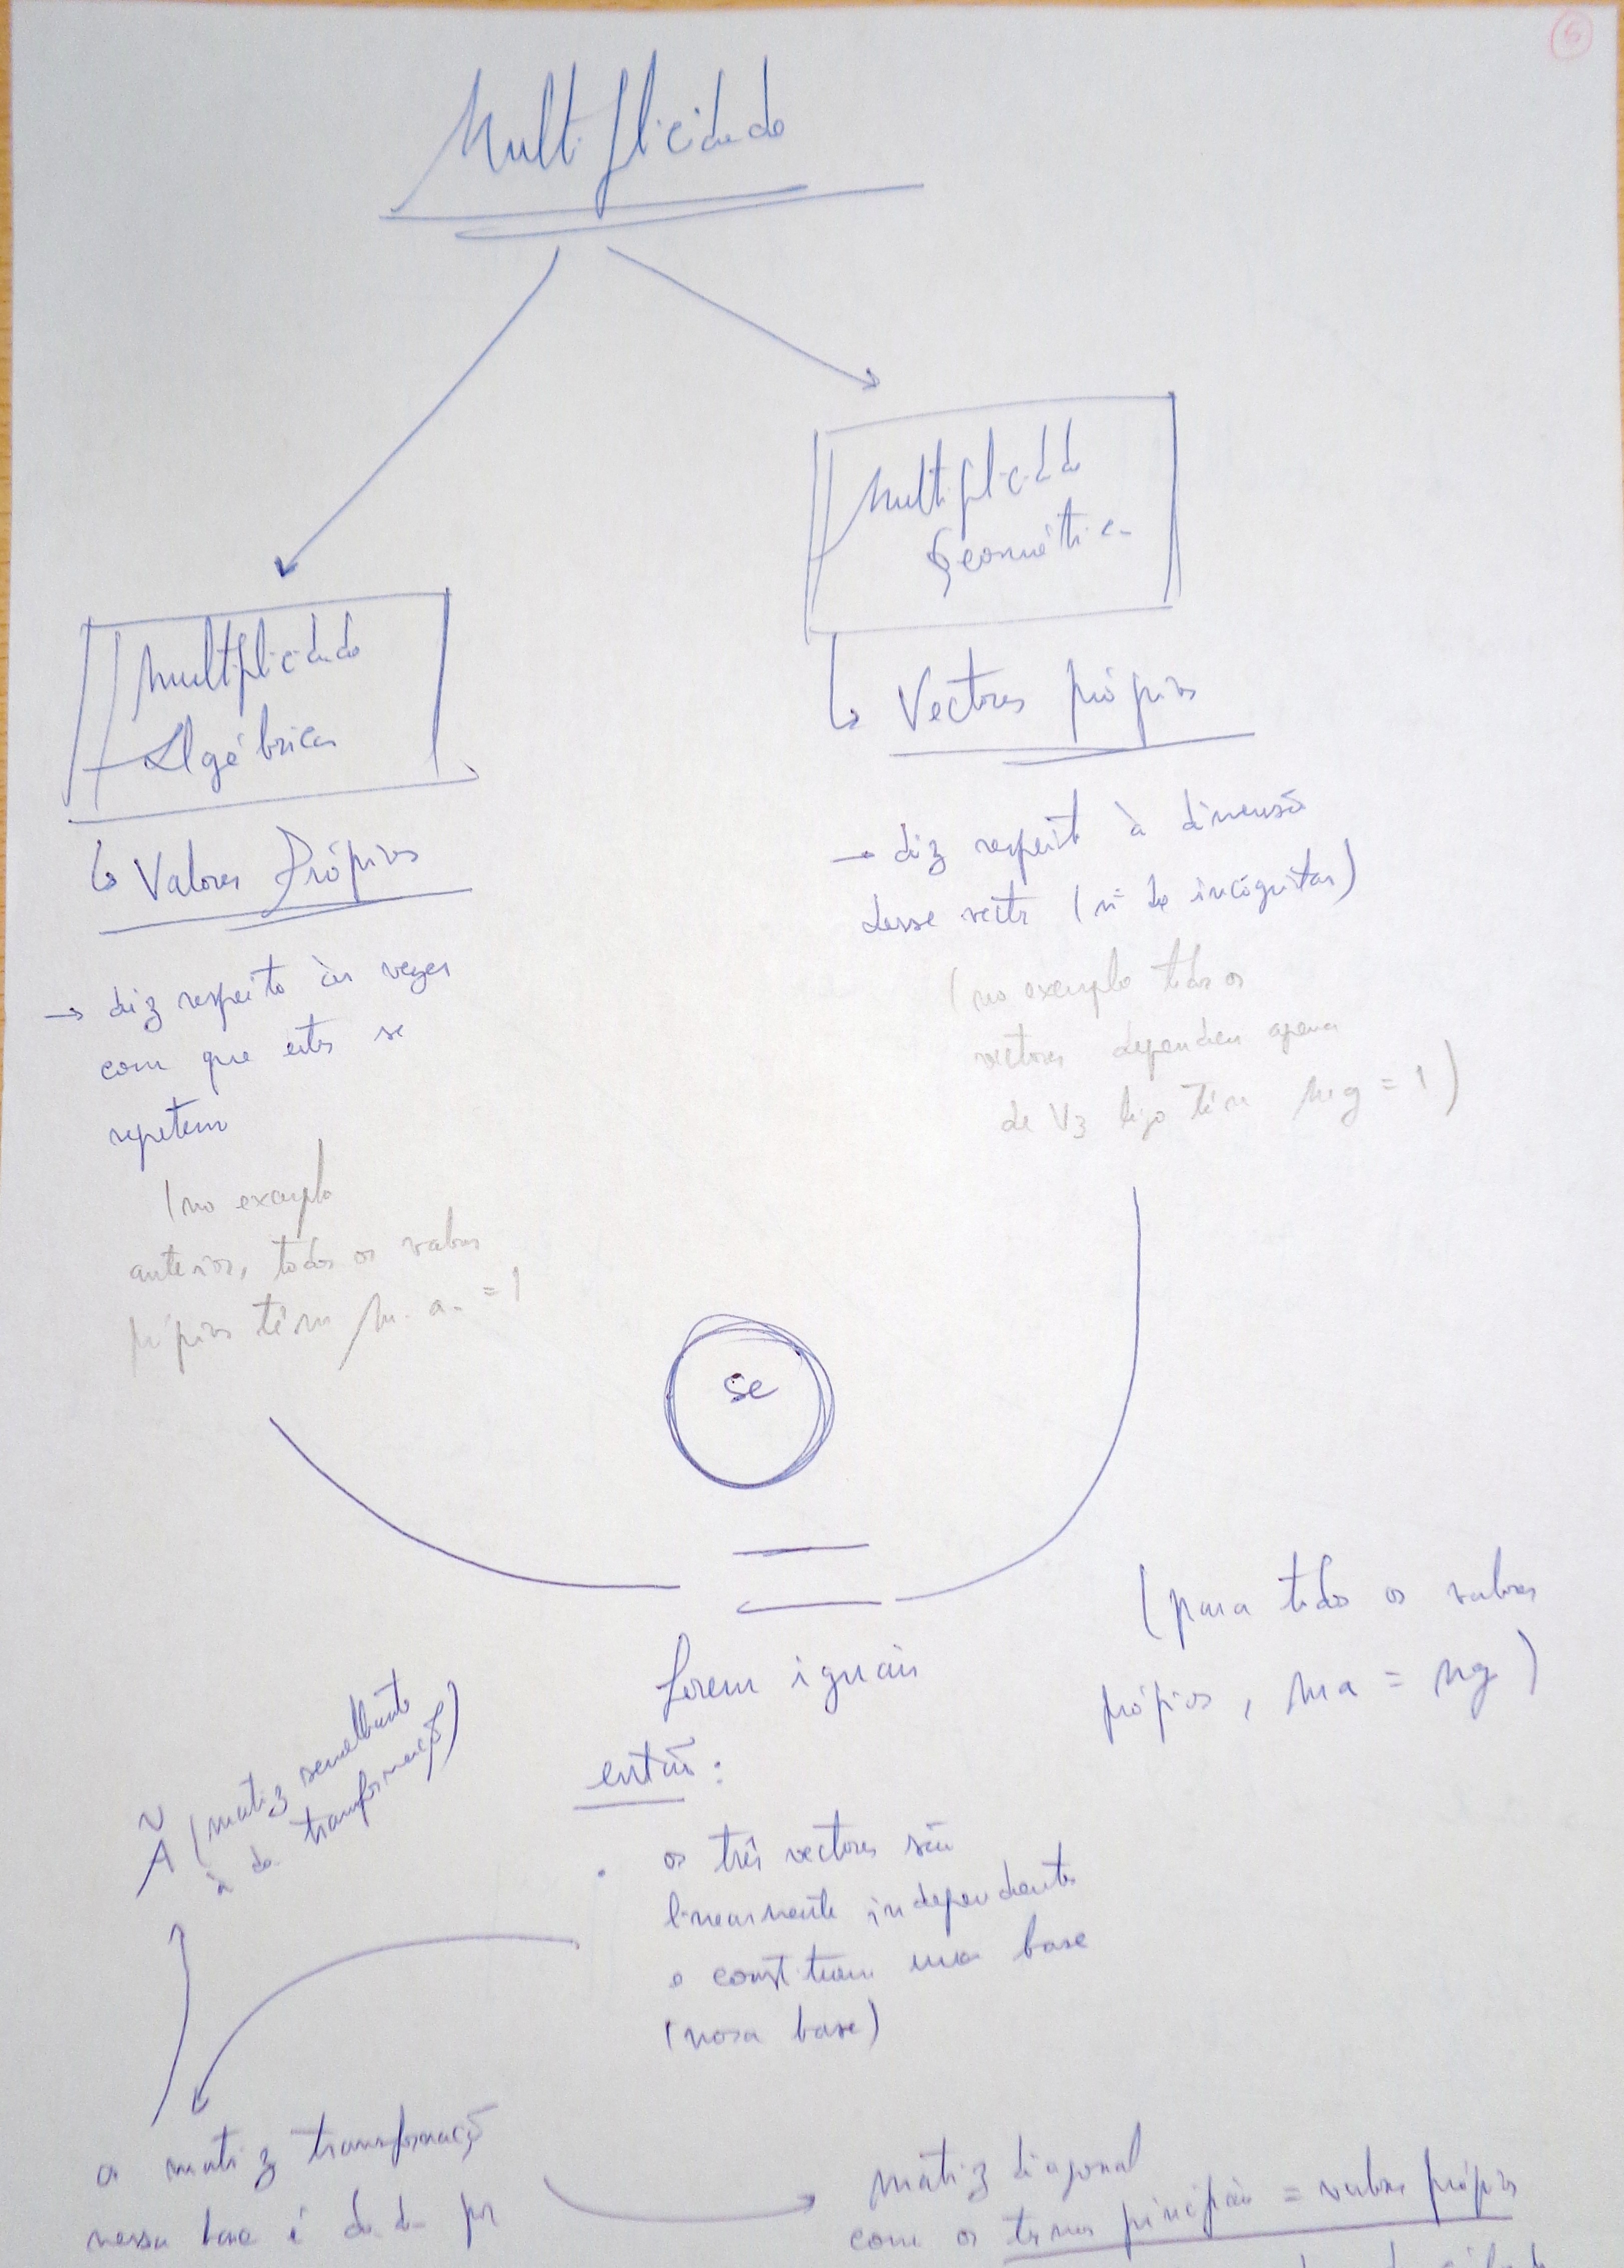 6
Multiplicidade
Multiplicidade
Geométrica
Multiplicidade
Algébrica
↳ Vectores próprios
→ diz respeito à dimensão
desse vector (nº de incógnitas)
(no exemplo todos os
vectores dependem apenas
de V3 logo têm mg = 1)
↳ Valores Próprios
→ diz respeito às vezes
com que estes se
repetem
(no exemplo
anterior, todos os valores
próprios têm m. a. = 1
se
=
forem iguais
(para todos os valores
próprios, ma = mg)
então:
. os três vectores são
linearmente independentes
e constituem uma base
(nova base)
Ã (matriz semelhante
à da transformação)
a matriz transformação
nessa base é dada por
matriz diagonal
com os termos principais = valores próprios